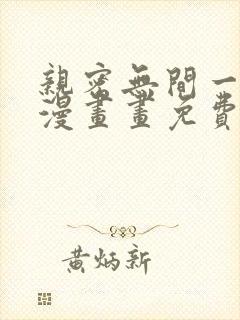 親密無間一
漫畫畫免費
黃炳新